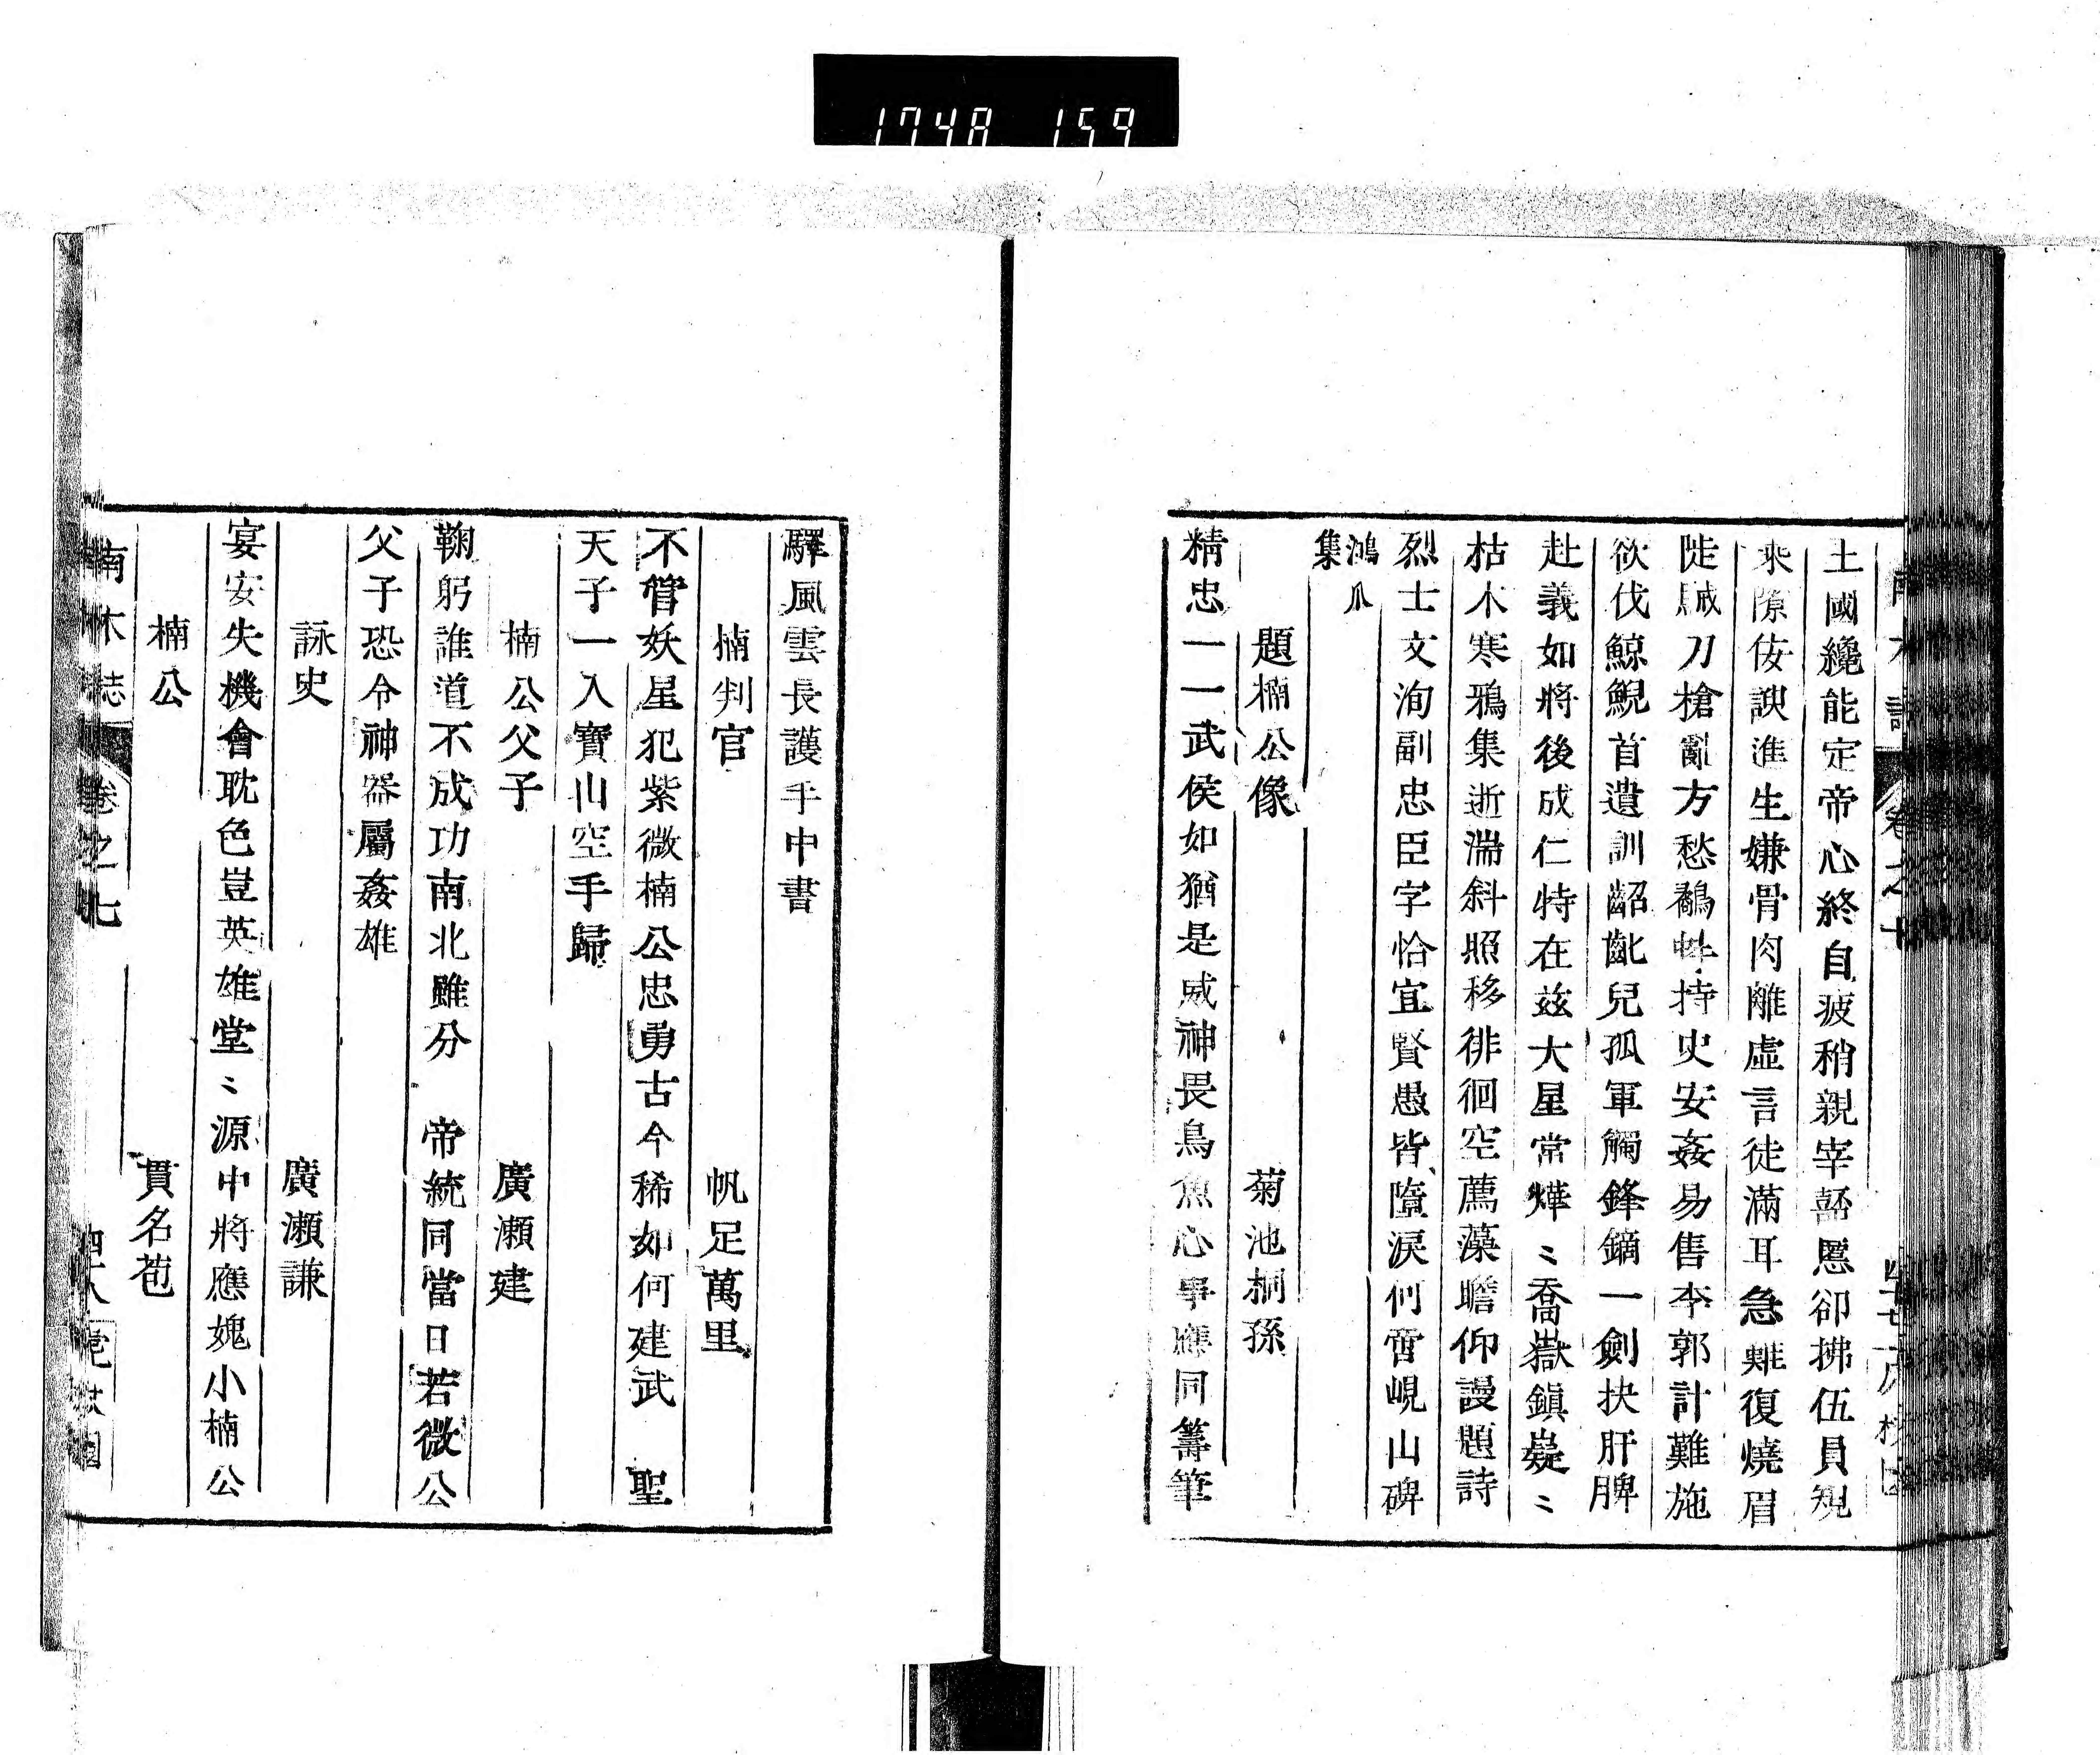 1748 159
土國纔能定帝心終自疲稍親宰嚭慝卻拂伍員規
乘隙佞諛進生嫌骨肉離虛言徒滿耳急難復燒眉
陡駴刀槍亂方愁鷸蚌持史安姦易售李郭計難施
欲伐鯨鯢首遺訓齠齔兒孤軍觸鋒鏑一劍抉肝脾
赴義如將後成仁特在茲大星常燁〻喬嶽鎮嶷〻
枯木寒鴉集逝湍斜照移徘徊空薦藻瞻仰謾題詩
烈士文洵副忠臣字恰宜賢愚皆墮淚何啻峴山碑
鴻爪集
題楠公像 菊池桐孫
精忠一一武侯如猶是威神畏鳥魚心事應同籌筆
驛風雲長護手中書
楠判官 帆足萬里
不管妖星犯紫微楠公忠勇古今稀如何建武 聖
天子一入寶山空手歸
楠公父子 廣瀨建
鞠躬誰道不成功南北雖分 帝統同當日若微公
父子恐令神器屬姦雄
詠史 廣瀨謙
宴安失機會耽色豈英雄堂〻源中將應媿小楠公
楠公 貫名苞
南木誌 卷之七